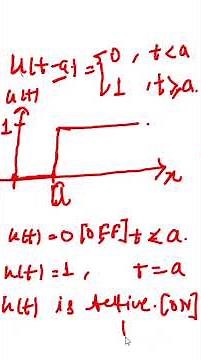 u(t-a) = { 0 , t<a
1 , t≥a.
u(t)
1
a
x
u(t) = 0 [OFF] t < a.
u(t) = 1 , t = a
u(t) is Active. [ON]